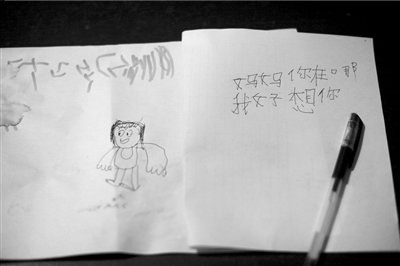 妈妈你在哪
我好想你